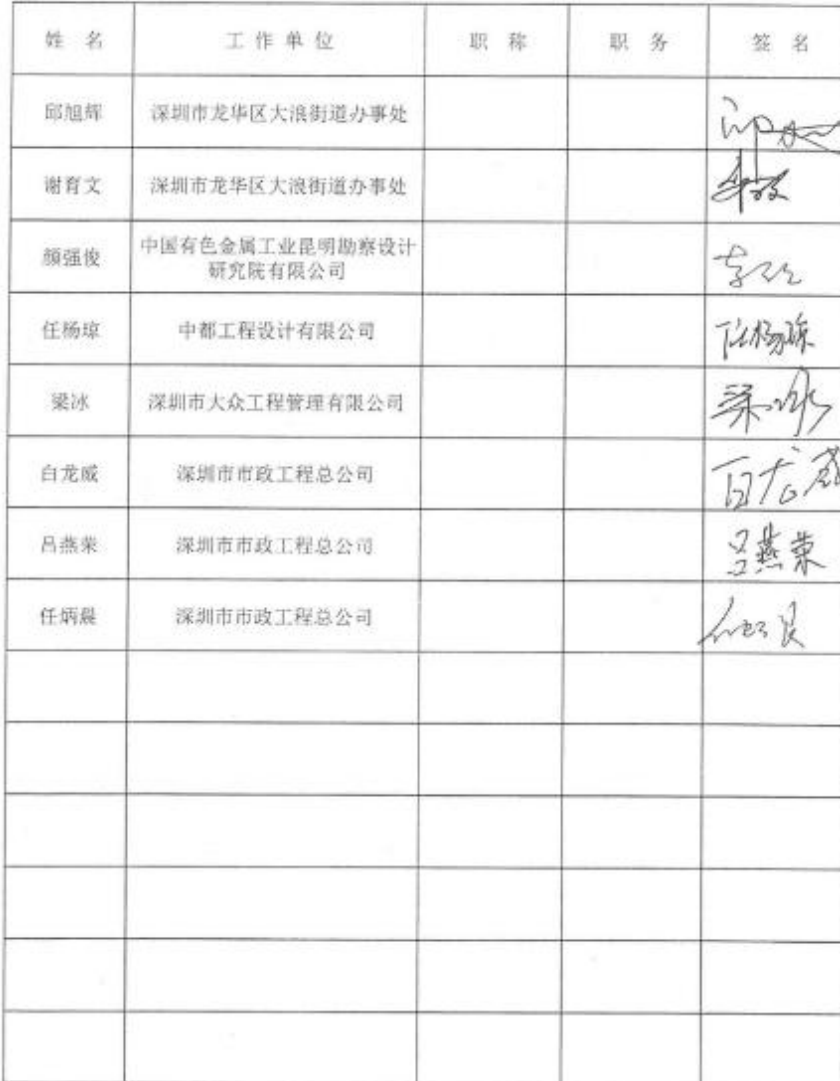 姓 名 工 作 单 位 职 称 职 务 签 名
邱旭辉 深圳市龙华区大浪街道办事处
谢育文 深圳市龙华区大浪街道办事处
颜强俊 中国有色金属工业昆明勘察设计
研究院有限公司
任杨琼 中都工程设计有限公司 任杨琼
梁冰 深圳市大众工程管理有限公司 梁冰
白龙威 深圳市市政工程总公司 白龙威
吕燕荣 深圳市市政工程总公司 吕燕荣
任炳晨 深圳市市政工程总公司